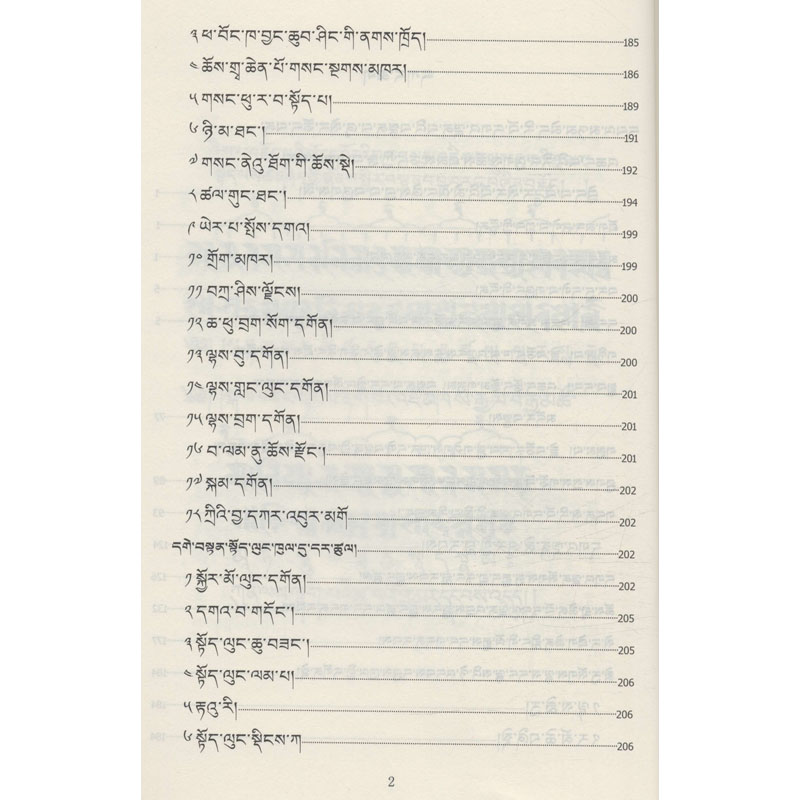 ༣ ཕ་བོང་ཁ་བྱང་ཆུབ་ཤིང་གི་ནགས་ཁྲོད། 185
༤ ཆོས་གྲྭ་ཆེན་པོ་གསང་སྔགས་མཁར། 186
༥ གསང་ཕུ་ར་བ་སྟོད་པ། 189
༦ ཉི་མ་ཐང་། 191
༧ གསང་ནེའུ་ཐོག་གི་ཆོས་སྡེ། 192
༨ ཚལ་གུང་ཐང་། 194
༩ ཡེར་པ་སྤོས་དགའ། 199
༡༠ གྲོག་མཁར། 199
༡༡ བཀྲ་ཤིས་ལྗོངས། 200
༡༢ ཆ་ཕུ་བྲག་སོག་དགོན། 200
༡༣ ལྷས་བུ་དགོན། 200
༡༤ ལྷས་གླང་ལུང་དགོན། 201
༡༥ ལྷས་བྲག་དགོན། 201
༡༦ བ་ལམ་ནུ་ཆོས་རྫོང་། 201
༡༧ སྐམ་དགོན། 202
༡༨ ཀྲིའི་བྱ་དཀར་འབུར་མགོ 202
དགེ་བསྟན་སྟོད་ལུང་ཁུལ་དུ་དར་ཚུལ། 202
༡ སྐྱོར་མོ་ལུང་དགོན། 202
༢ དགའ་བ་གདོང་། 205
༣ སྟོད་ལུང་ཆུ་བཟང་། 205
༤ སྟོད་ལུང་ལམ་པ། 206
༥ རྟའུ་རི། 206
༦ སྟོད་ལུང་སྡིངས་ཀ 206
2